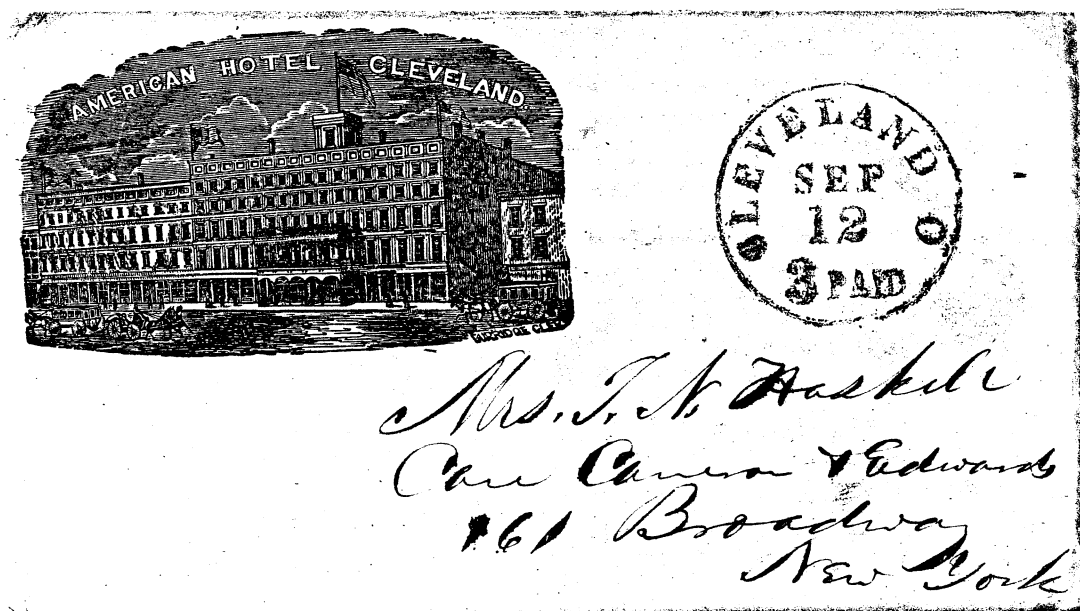 AMERICAN HOTEL CLEVELAND
CLEVELAND O
SEP
12
3 PAID
Mrs. T. N. Haskell
Care Cameron & Edwards
161 Broadway
New York